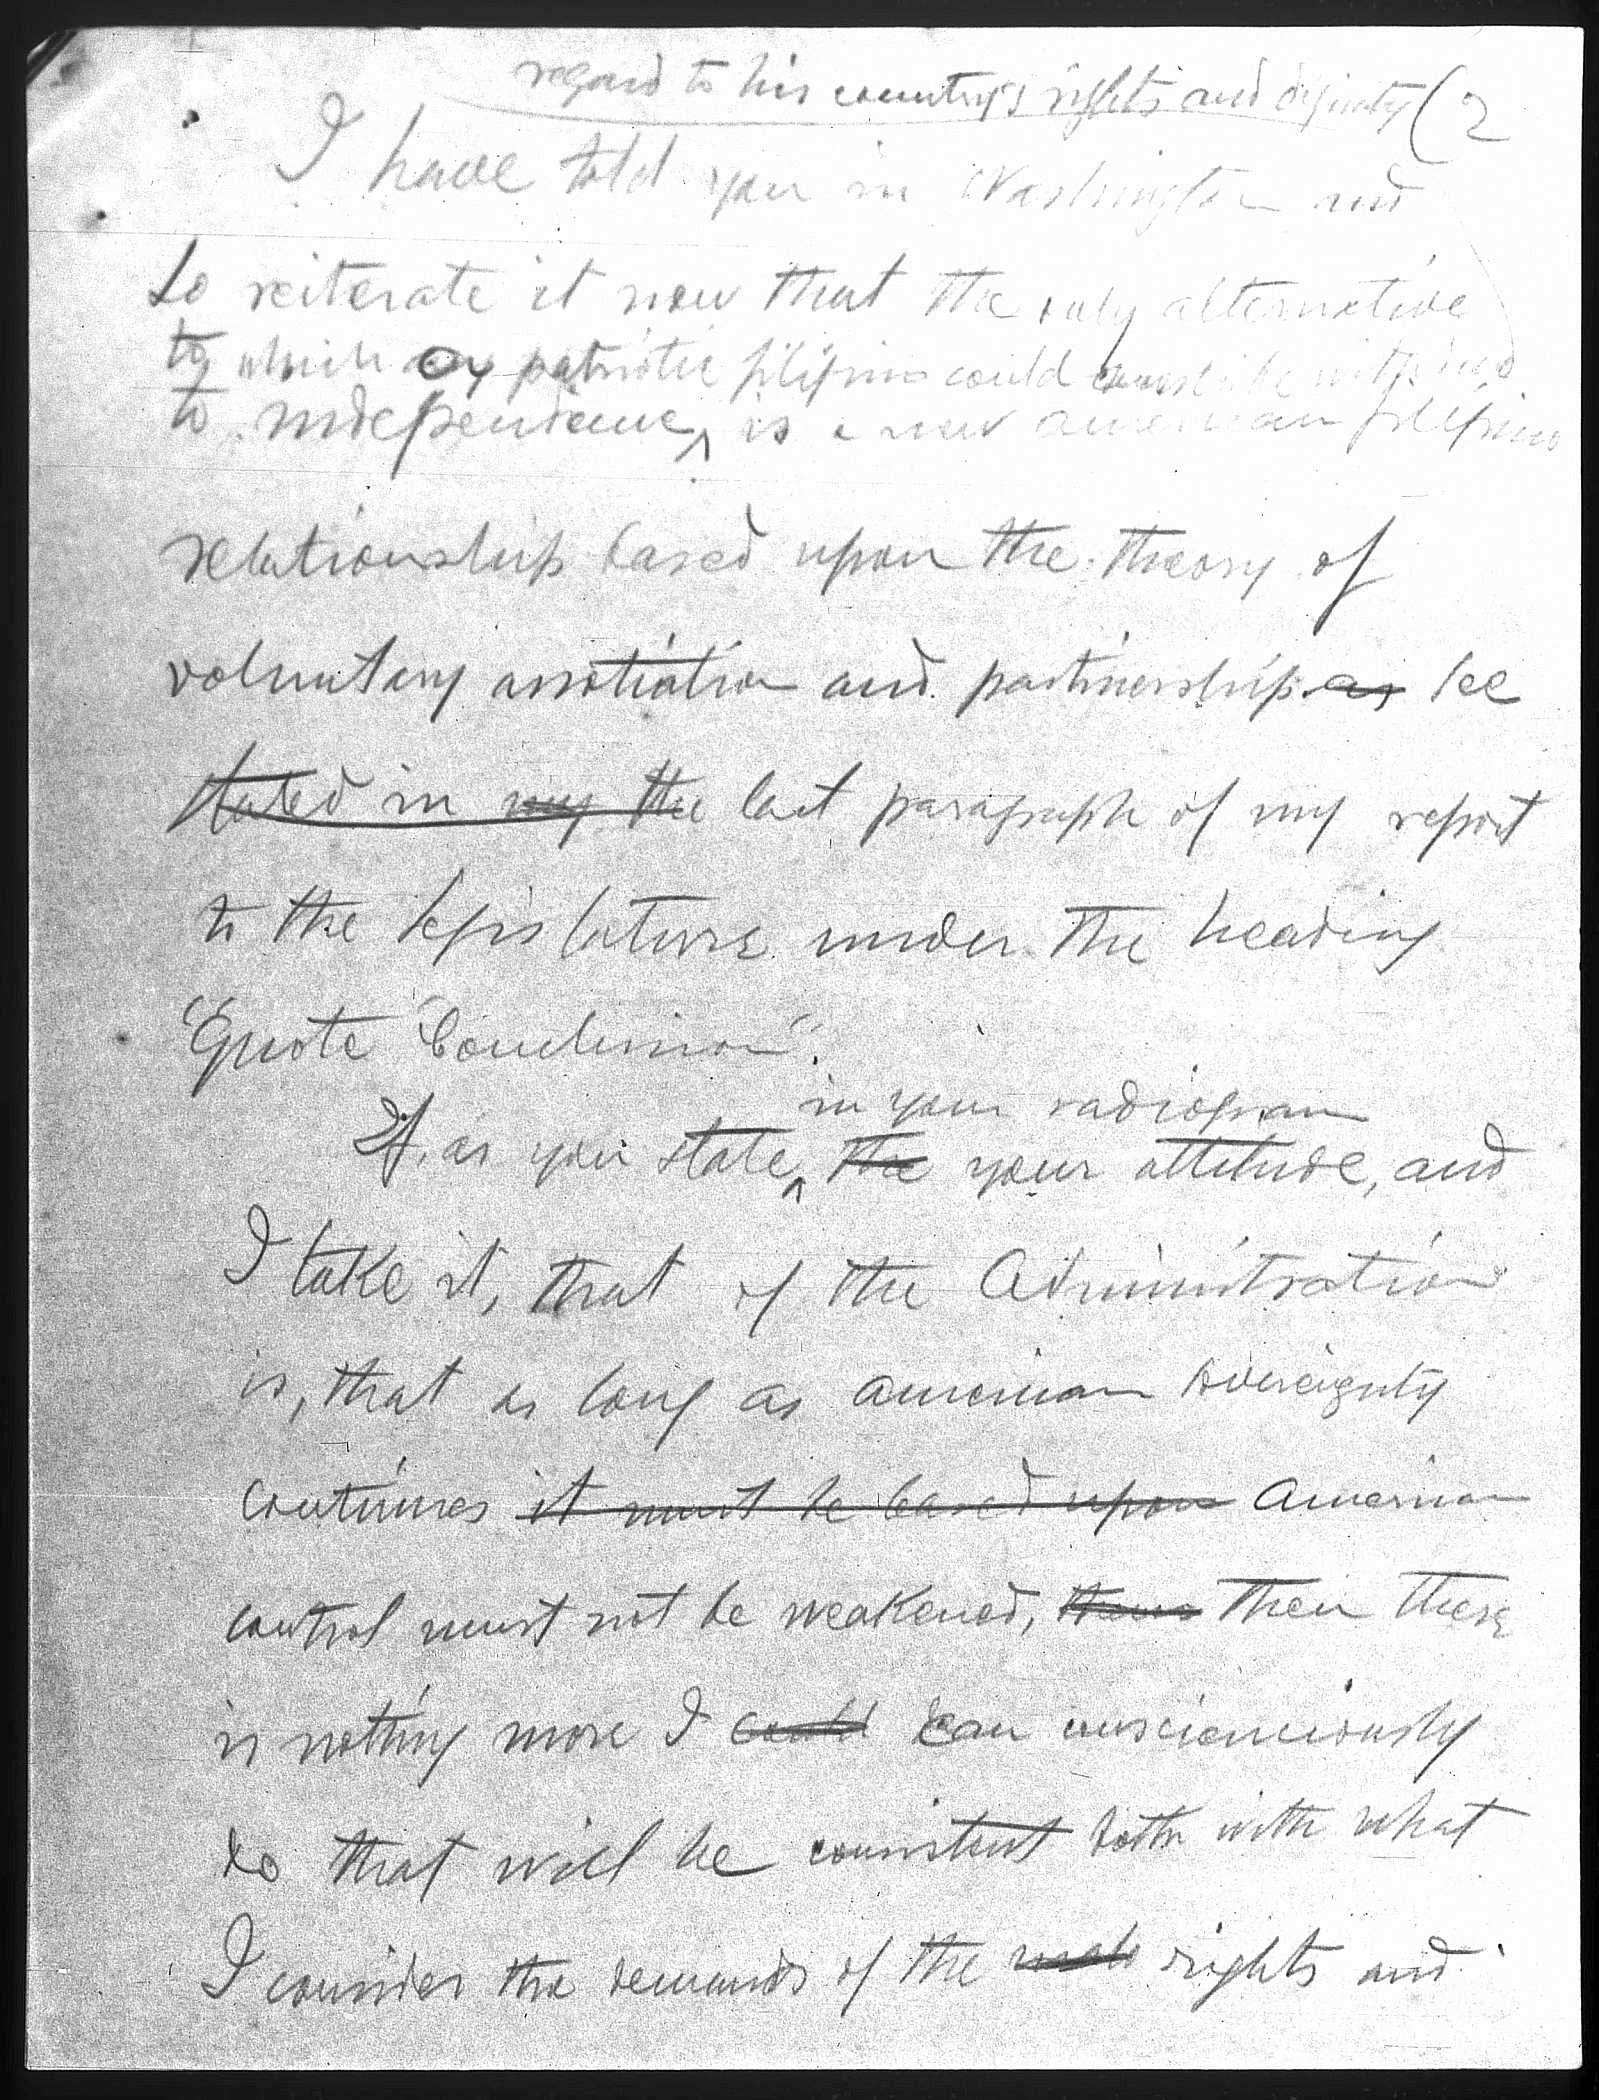 regard to his country's rights and dignity (2
I have told you in Washington and
do reiterate it now that the only alternative
to which any patriotic filipino could
to independence, is a new american filipino
relationship based upon the theory of
voluntary association and partnership as see
stated in my the last paragraph of my report
to the legislature under the heading
"Quote "Conclusion".
in your radiogram
If, as you state, the your attitude, and
I take it, that of the Administration
is, that as long as american sovereignty
continues it must be based upon American
control must not be weakened, then there
is nothing more I could can consciensciously
do that will be consistent both with what
I consider the demands of the rights and